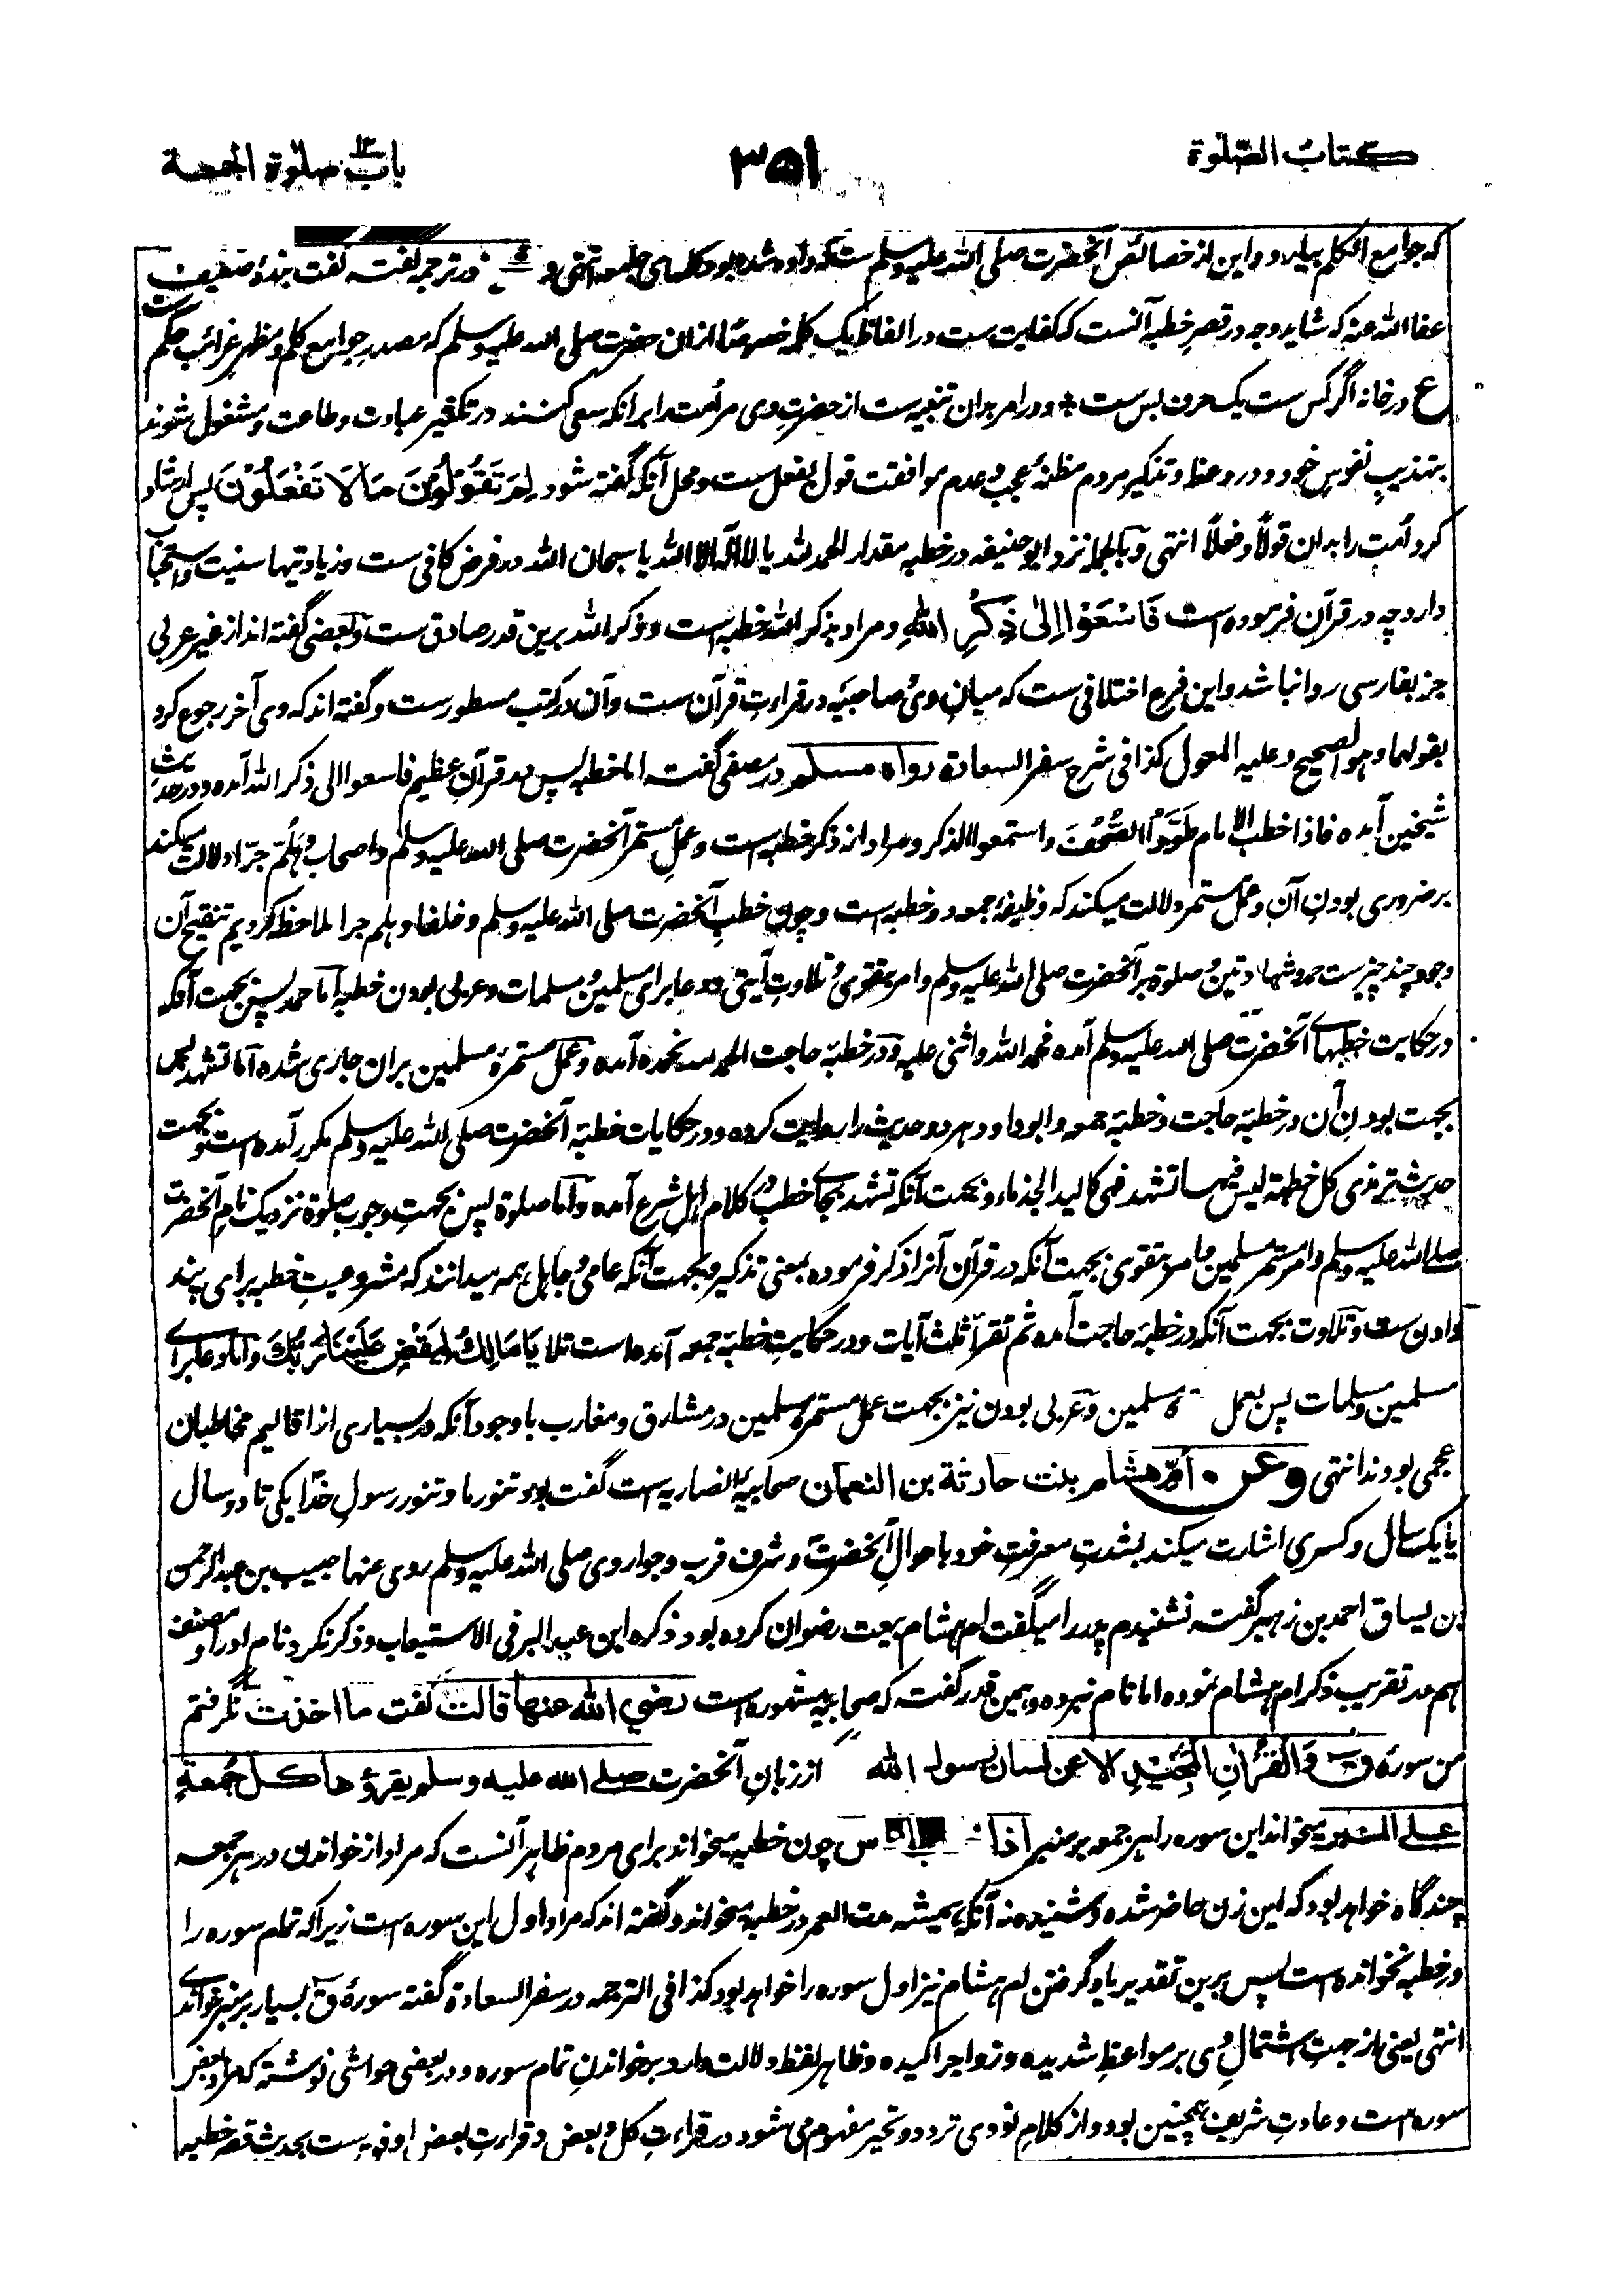 كتاب الصلوة
٣٥١
باب صلوة الجمعة
که جوامع الکلم بیارد و این از خصائص آنحضرت صلی الله علیه وسلم ست که داده شده بود کلمهای جامعه انتهی و در ترجمه گفته گفت بندهٔ ضعیف
عفا الله عنه که شاید وجه در قصر خطبه آنست که کفایت ست در الفاظ یک کلمه خصوصًا ازان حضرت صلی الله علیه وسلم که مصدر جوامع کلم و مظهر غرائب حکم ست
ع در خانه اگر کس ست یک حرف بس ست * و در امر بدان تنبیه ست از حضرت وی مر امت را برانکه سعی کنند در تکثیر عبادت و طاعت و مشغول شوند
بتهذیب نفوس خود و در وعظ و تذکیر مردم مظنهٔ عجب و عدم موافقت قول بفعل ست و محل آنکه گفته شود لِمَ تَقُولُونَ مَا لَا تَفْعَلُونَ پس ارشاد
کرد امت را بدان قولاً و فعلاً انتهی و بالجمله نزد ابو حنیفه در خطبه مقدار الحمد لله یا لا اله الا الله یا سبحان الله در فرض کافی ست و زیادتیها سنیت و استحباب
دارد چه در قرآن فرموده است فَاسْعَوْا اِلٰى ذِكْرِ اللهِ و مراد بذکر الله خطبه است و ذکر الله برین قدر صادق ست و بعضی گفته اند از غیر عربی
جز بفارسی روا نباشد و این فرع اختلافی ست که میان وی و صاحبیه در قراءت قرآن ست و آن در کتب مسطورست و گفته اند که وی آخر رجوع کرد
بقولهما و هو الصحیح و علیه المعول کذا فی شرح سفر السعادة رواه مسلم در مصفی گفته اما خطبه پس در قرآن عظیم فاسعوا الی ذکر الله آمده و در حدیث
شیخین آمده فاذا خطب الامام طَوَوُا الصُّحُفَ و استمعوا الذکر و مراد از ذکر خطبه است و عمل مستمر آنحضرت صلی الله علیه وسلم و اصحاب و هلم جرّا دلالت میکند
بر ضروری بودن آن و عمل مستمر دلالت میکند که وظیفهٔ جمعه دو خطبه است و چون خطب آنحضرت صلی الله علیه وسلم و خلفا و هلم جرا ملاحظه کردیم تنقیح آن
وجود چند چیزست حمد و شهادتین و صلوة بر آنحضرت صلی الله علیه وسلم و امر بتقوی و تلاوت آیتی و دعا برای مسلمین و مسلمات و عربی بودن خطبه اما حمد پس بجهت آنکه
در حکایت خطبهای آنحضرت صلی الله علیه وسلم آمده فحمد الله واثنی علیه و در خطبهٔ حاجت الحمد لله نحمده آمده و عمل مستمرهٔ مسلمین بران جاری شده اما تشهد پس
بجهت بودن آن در خطبهٔ حاجت و خطبهٔ جمعه و ابو داود هر دو حدیث را روایت کرده و در حکایات خطبهٔ آنحضرت صلی الله علیه وسلم مکرر آمده است و بجهت
حدیث ترمذی کل خطبة لیس فیها تشهد فهی کالید الجذماء و بجهت آنکه تشهد بجای خطب در کلام اهل شرع آمده و اما صلوة پس بجهت وجوب صلوة نزدیک نام آنحضرت
صلی الله علیه وسلم و امر مستمر مسلمین و امر بتقوی بجهت آنکه در قرآن آنرا ذکر فرموده بمعنی تذکیر و بجهت آنکه عامی و جاهل همه میدانند که مشروعیت خطبه برای پند
دادن ست و تلاوت بجهت آنکه در خطبهٔ حاجت آمده ثم تقرأ ثلث آیات و در حکایت خطبهٔ جمعه آمده است تلا یَا مَالِكُ لِيَقْضِ عَلَيْنَا رَبُّكَ و اما دعا برای
مسلمین و مسلمات پس بعمل مسلمین و عربی بودن نیز بجهت عمل مستمرهٔ مسلمین در مشارق و مغارب با وجود آنکه در بسیاری از اقالیم مخاطبان
عجمی بودند انتهی وعن أم هشام بنت حارثة بن النعمان صحابیهٔ انصاریه است گفت بود تنور ما و تنور رسول خدا یکی تا دو سال
یا یک سال و کسری اشارت میکند بشدت معرفت خود باحوال آنحضرت و شرف قرب و جوار وی صلی الله علیه وسلم روی عنها حبیب بن عبد الرحمن
بن یساف احمد بن زهیر گفت شنیدم پدر را میگفت ام هشام بیعت رضوان کرده بود ذکره ابن عبد البر فی الاستیعاب و ذکر نکرد نام او را و مصنف
هم در تقریب ذکر ام هشام نموده اما نام نبرده و همین قدر گفت که صحابیه مشهوره است رضي الله عنها قالت گفت ما اخذت نگرفتم
من سورهٔ ق وَالْقُرْاٰنِ الْمَجِيْدِ الا عن لسان رسول الله از زبان آنحضرت صلى الله عليه وسلم يقرؤها كل جمعة
على المنبر میخواند این سوره را هر جمعه بر منبر اذا چون خطبه میخواند برای مردم ظاهر آنست که مراد از خواندن در هر جمعه
چندگاه خواهد بود که این زن حاضر شده و شنیده نه آنکه همیشه مدت العمر در خطبه میخواند و گفته اند که مراد اول این سوره است زیرا که تمام سوره را
در خطبه نخوانده است پس برین تقدیر یاد گرفتن ام هشام نیز اول سوره را خواهد بود کذا فی الترجمه در سفر السعادة گفته سورهٔ ق بسیار بر منبر خواندی
انتهی یعنی از جهت اشتمال وی بر مواعظ شدیده و زواجر اکیده و ظاهر لفظ دلالت دارد بر خواندن تمام سوره و در بعضی حواشی نوشته که مراد بعض
سوره است و عادت شریف همچنین بود و از کلام نووی تردد و تخیر مفهوم می شود در قراءت کل و بعض و قراءت بعض اوفق است بحدیث قصر خطبه